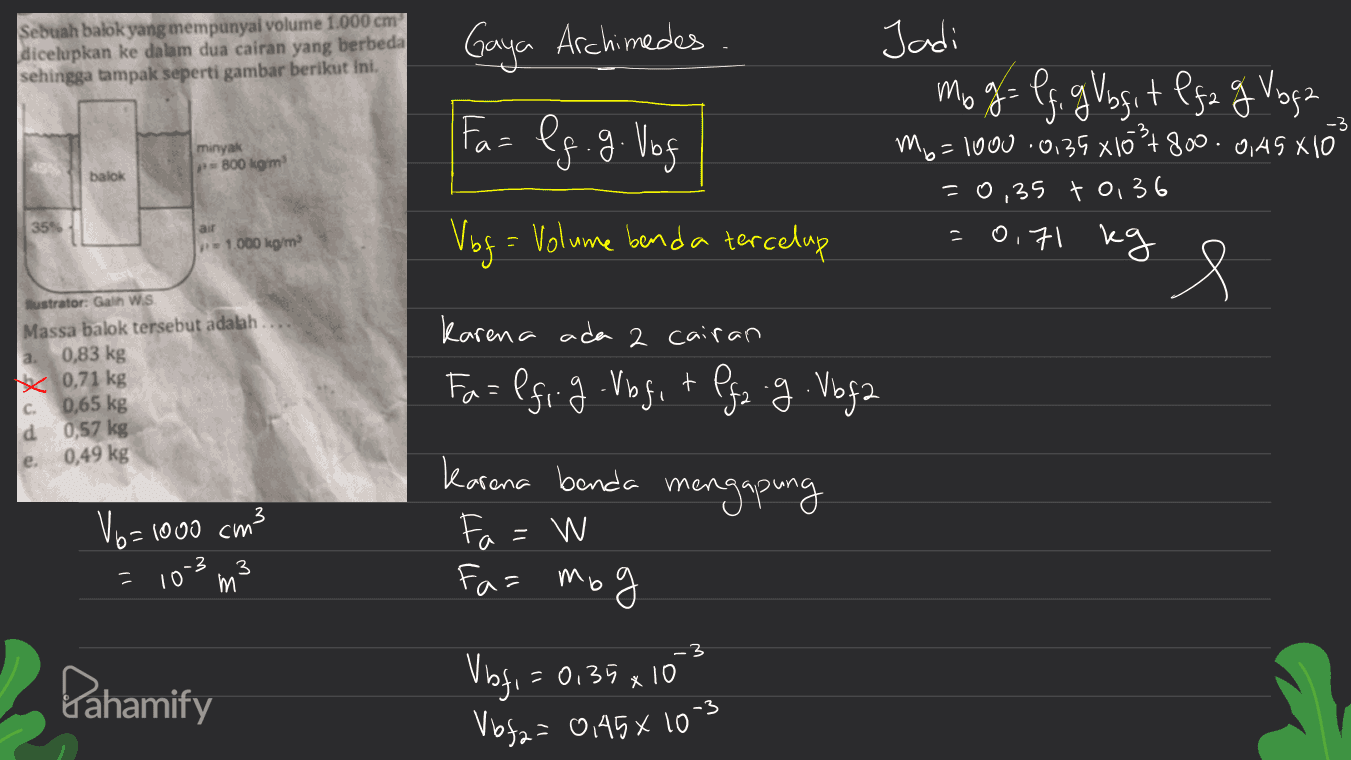 Sebuah balok yang mempunyai volume 1.000 cm³
dicelupkan ke dalam dua cairan yang berbeda
sehingga tampak seperti gambar berikut ini.
minyak
ρ = 800 kg/m³
balok
35%
air
ρ = 1.000 kg/m³
Ilustrator: Galih W.S.
Massa balok tersebut adalah ....
a. 0,83 kg
b. 0,71 kg
c. 0,65 kg
d 0,57 kg
e. 0,49 kg
Vb = 1000 cm³
= 10⁻³ m³
Pahamify
Gaya Archimedes.
Fa = ρf . g . Vbf
Vbf = Volume benda tercelup
Karena ada 2 cairan
Fa = ρf₁ . g . Vbf₁ + ρf₂ . g . Vbf₂
Karena benda mengapung
Fa = W
Fa = mb g
Vbf₁ = 0,35 x 10⁻³
Vbf₂ = 0,45 x 10⁻³
Jadi
mb g = ρf₁ g Vbf₁ + ρf₂ g Vbf₂
mb = 1000 . 0,35 x 10⁻³ + 800 . 0,45 x 10⁻³
= 0,35 + 0,36
= 0,71 kg